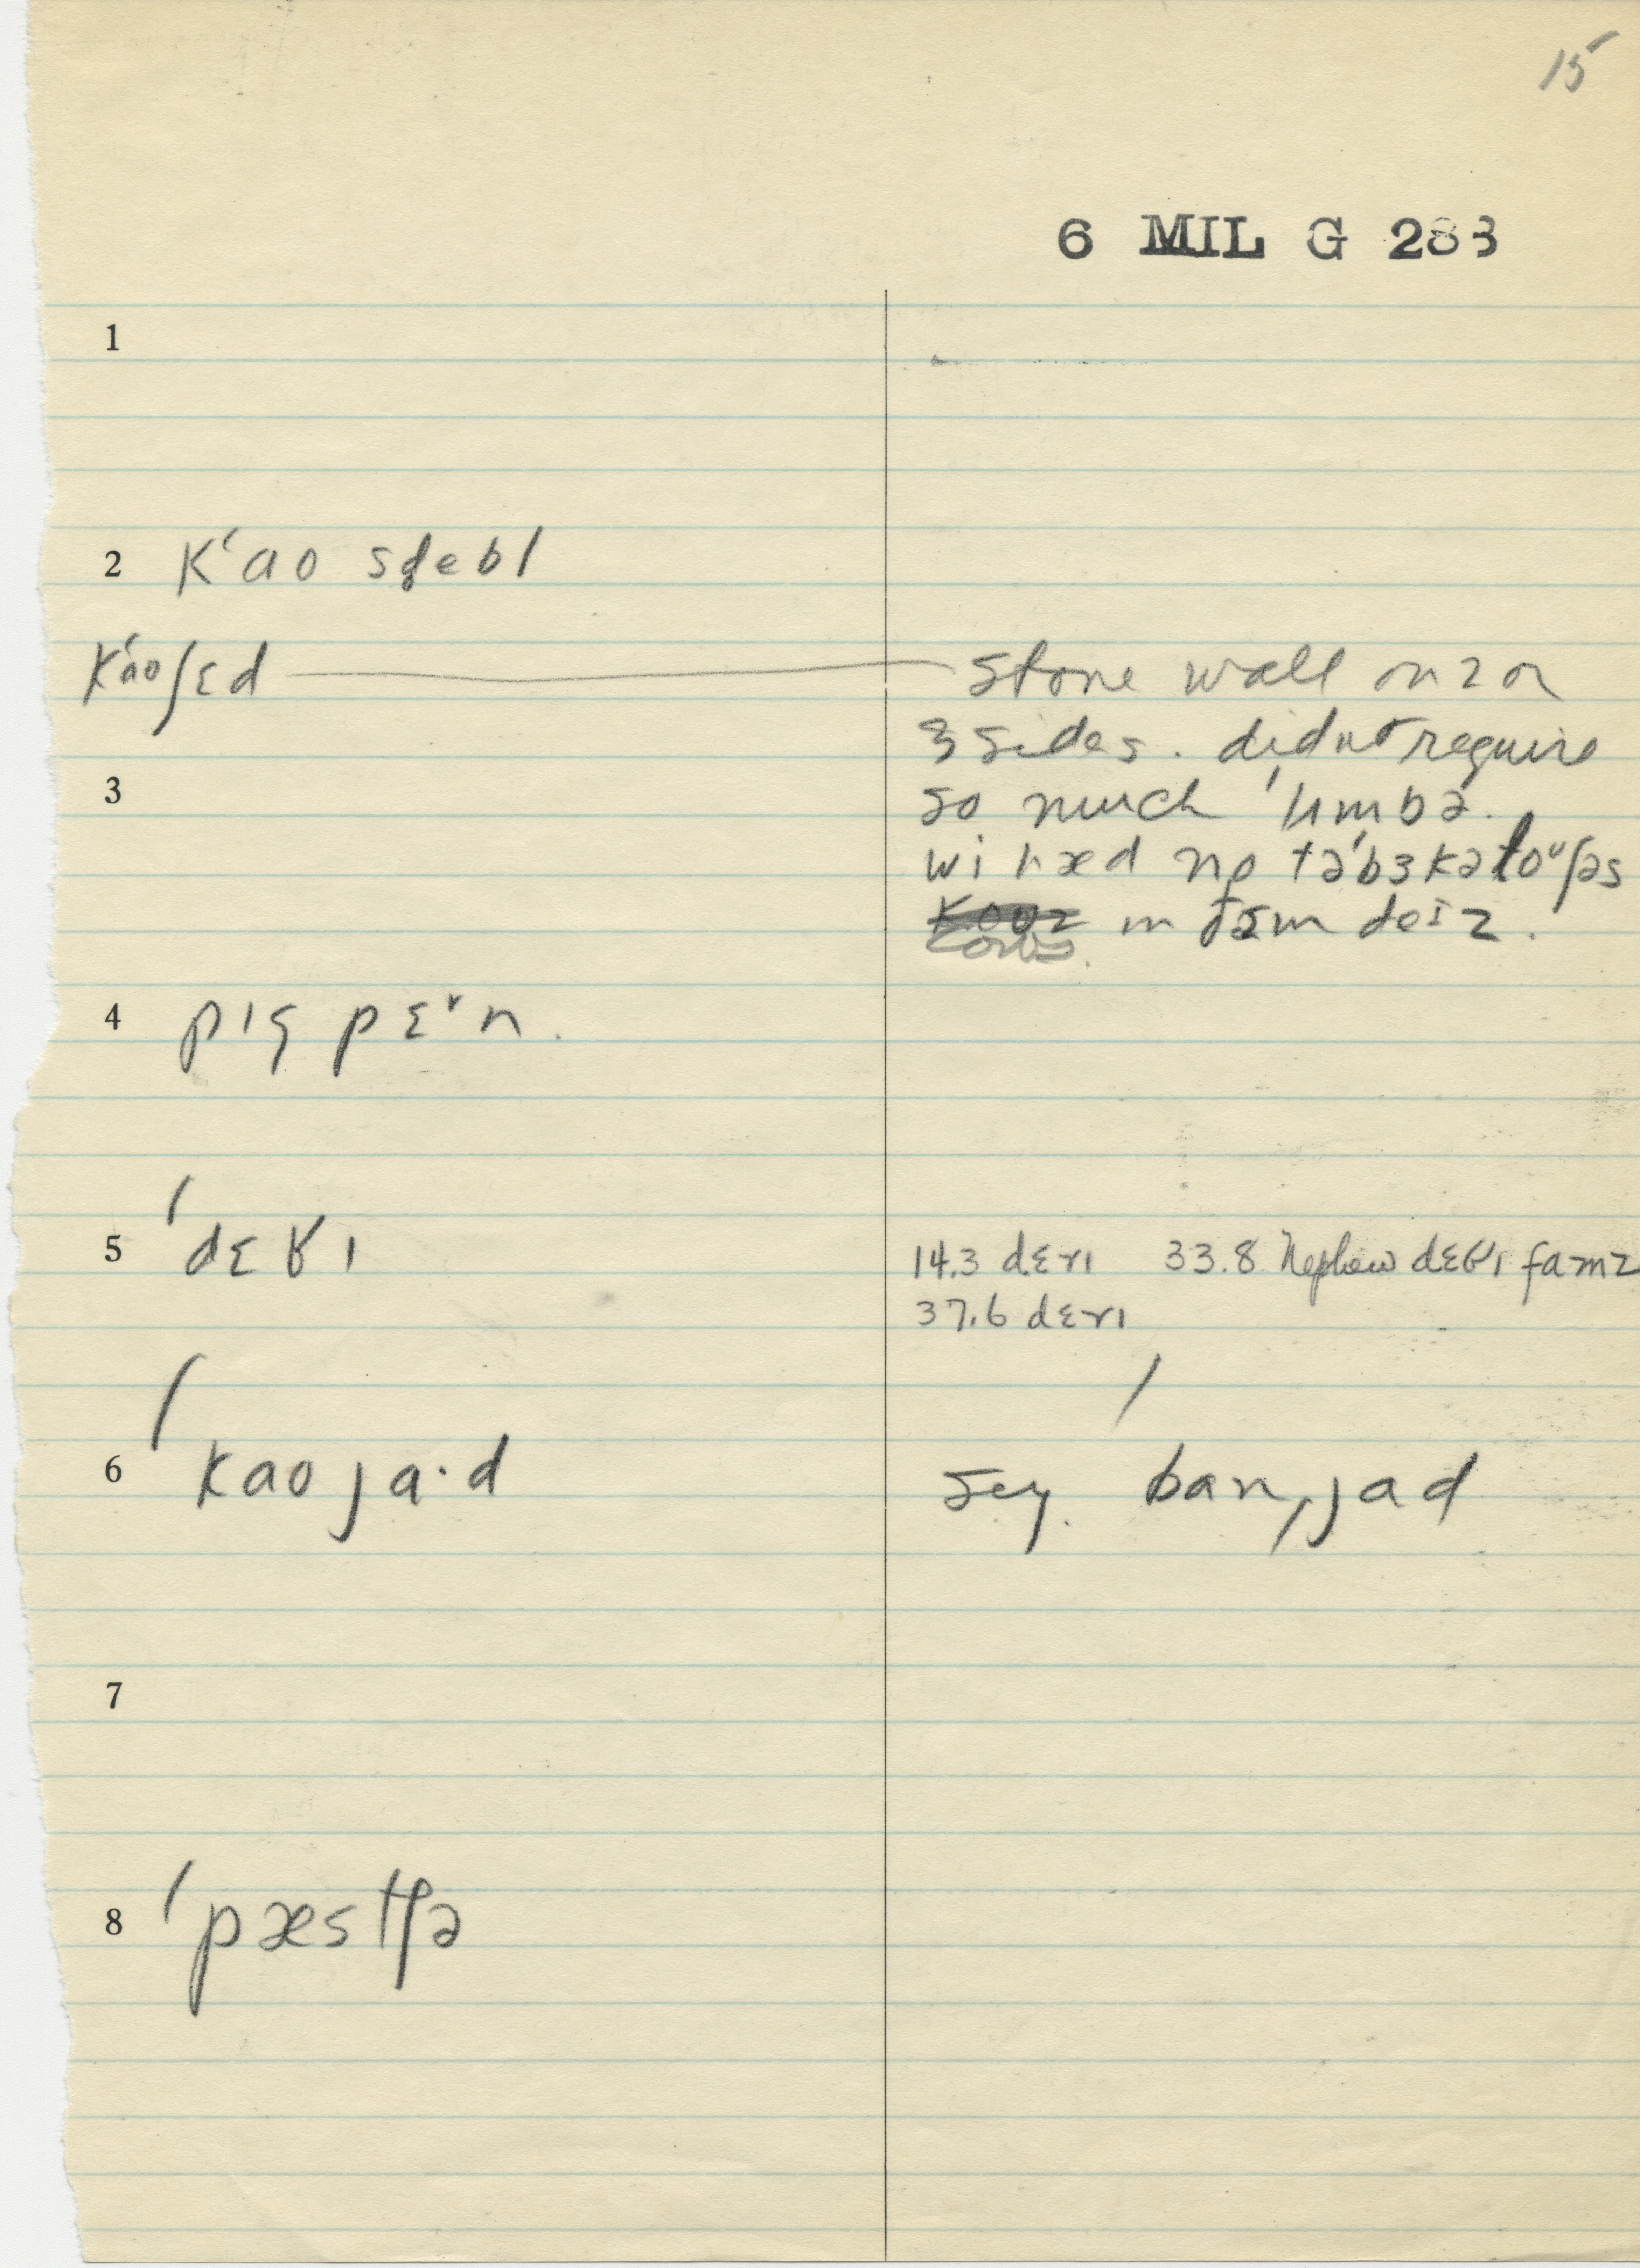 15
6 MIL G 283
1
2 kʻao sdebl
kʻaoʃɛd stone wall on 2 or
3 sides. didnt require
3 so much ˈlʌmbə.
wi hæd no təˈbɜkəloʊsəs
cows in ðɛm deɪz.
4 pɪg pɛˇn.
5 ˈdɛɤɪ 14.3 dɛrɪ 33.8 Nephew dɛɤɪ famz
37.6 dɛrɪ
6 ˈkaoja·d sey. ˈbanˌjad
7
8 ˈpæstʃə